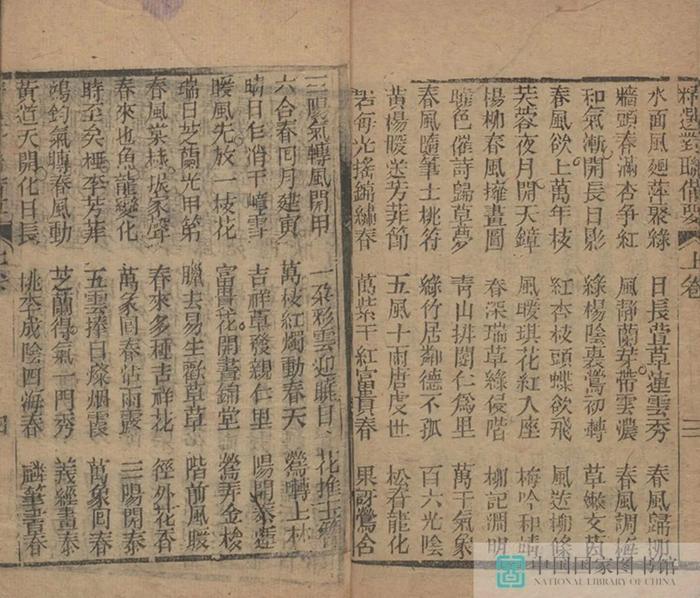 上卷
三
水面風廻萍聚綠 日長萱草蓮雲秀 春風歸柳
牆頭春滿杏爭紅 風靜蘭芽帶雲濃 春風調梅
和氣漸開長日影 綠楊陰裏鶯初轉 草嫩文茵
春風欲上萬年枝 紅杏枝頭蝶欲飛 風送柳條
芙蓉夜月開天鏡 風暖琪花紅入座 梅吟和靖
楊柳春風擁畫圖 春深瑞草綠侵階 柳記淵明
曉色催詩歸草夢 青山排闥仁爲里 萬千氣象
春風隨筆上桃符 綠竹居鄰德不孤 百六光陰
黃楊暖送芳菲節 五風十雨唐虞世 松看龍化
光搖錦繡春 萬紫千紅富貴春 果訝鶯含
三陽氣轉風開甲 一朶彩雲迎曉日
六合春回月建寅 萬枝紅燭動春天 鶯轉上林
晴日乍消千嶂雪 吉祥草發親仁里 陽開泰運
暖風先放一枝花 富貴花開晝錦堂 鶯弄金梭
瑞日芝蘭光甲第 臘去易生草草 階前風暖
春風棠棣振家聲 春來多種吉祥花 徑外花香
春來也魚龍變化 萬象回春沾雨露 三陽開泰
時至矣桃李芳菲 五雲捧日燦烟霞 萬象回春
鴻鈞氣轉春風動 芝蘭得氣一門秀 羲經畫泰
黃道天開化日長 桃李成陰四海春 麟筆書春
四
中国国家图书馆
NATIONAL LIBRARY OF CHINA